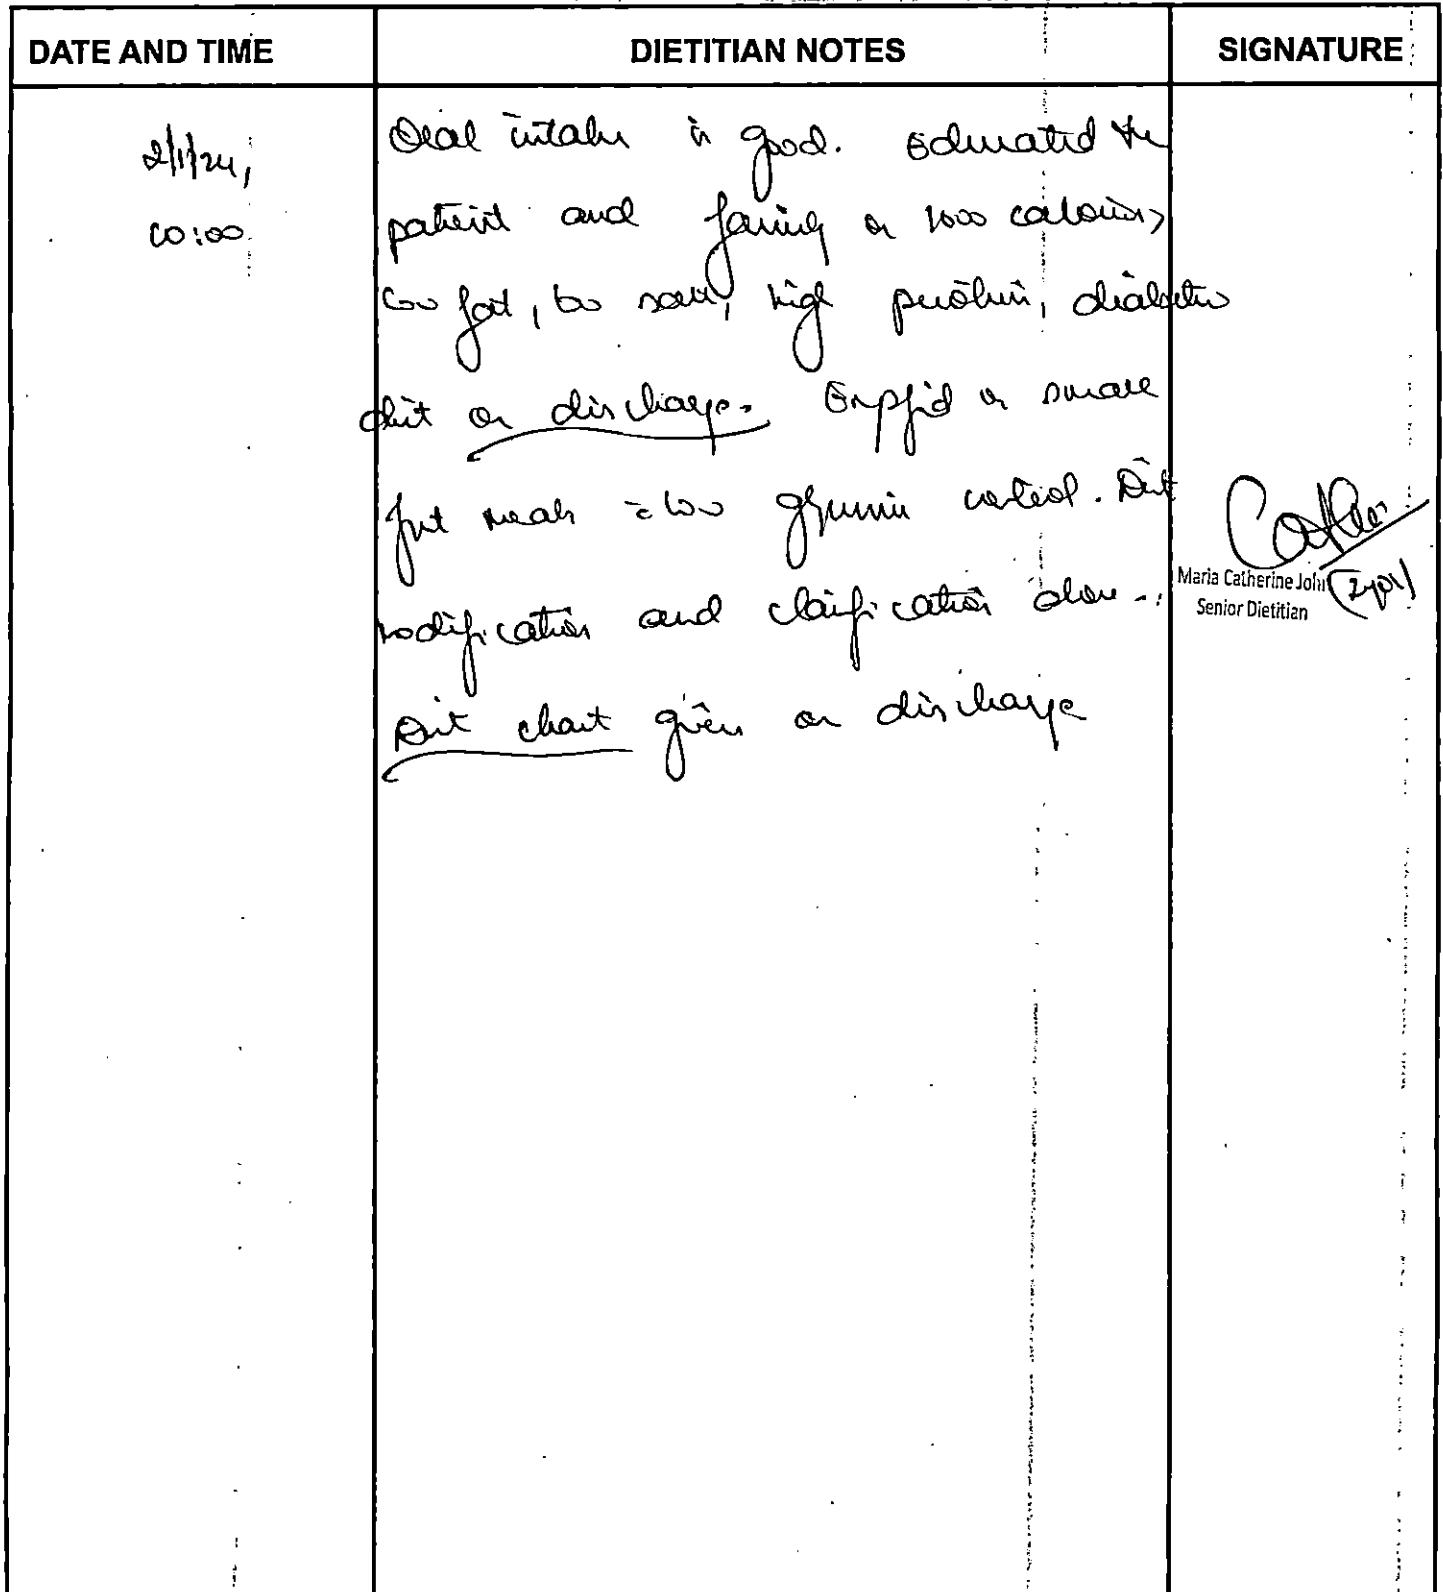 DATE AND TIME
DIETITIAN NOTES
SIGNATURE
2/1/24,
10:00
Oral intake is good. Educated the
patient and family on calories,
low fat, low salt, high protein, diabetic
diet on discharge. on small
meals low glycemic control. Diet
modification and clarification done.
Diet chart given on discharge
Maria Catherine John
Senior Dietitian